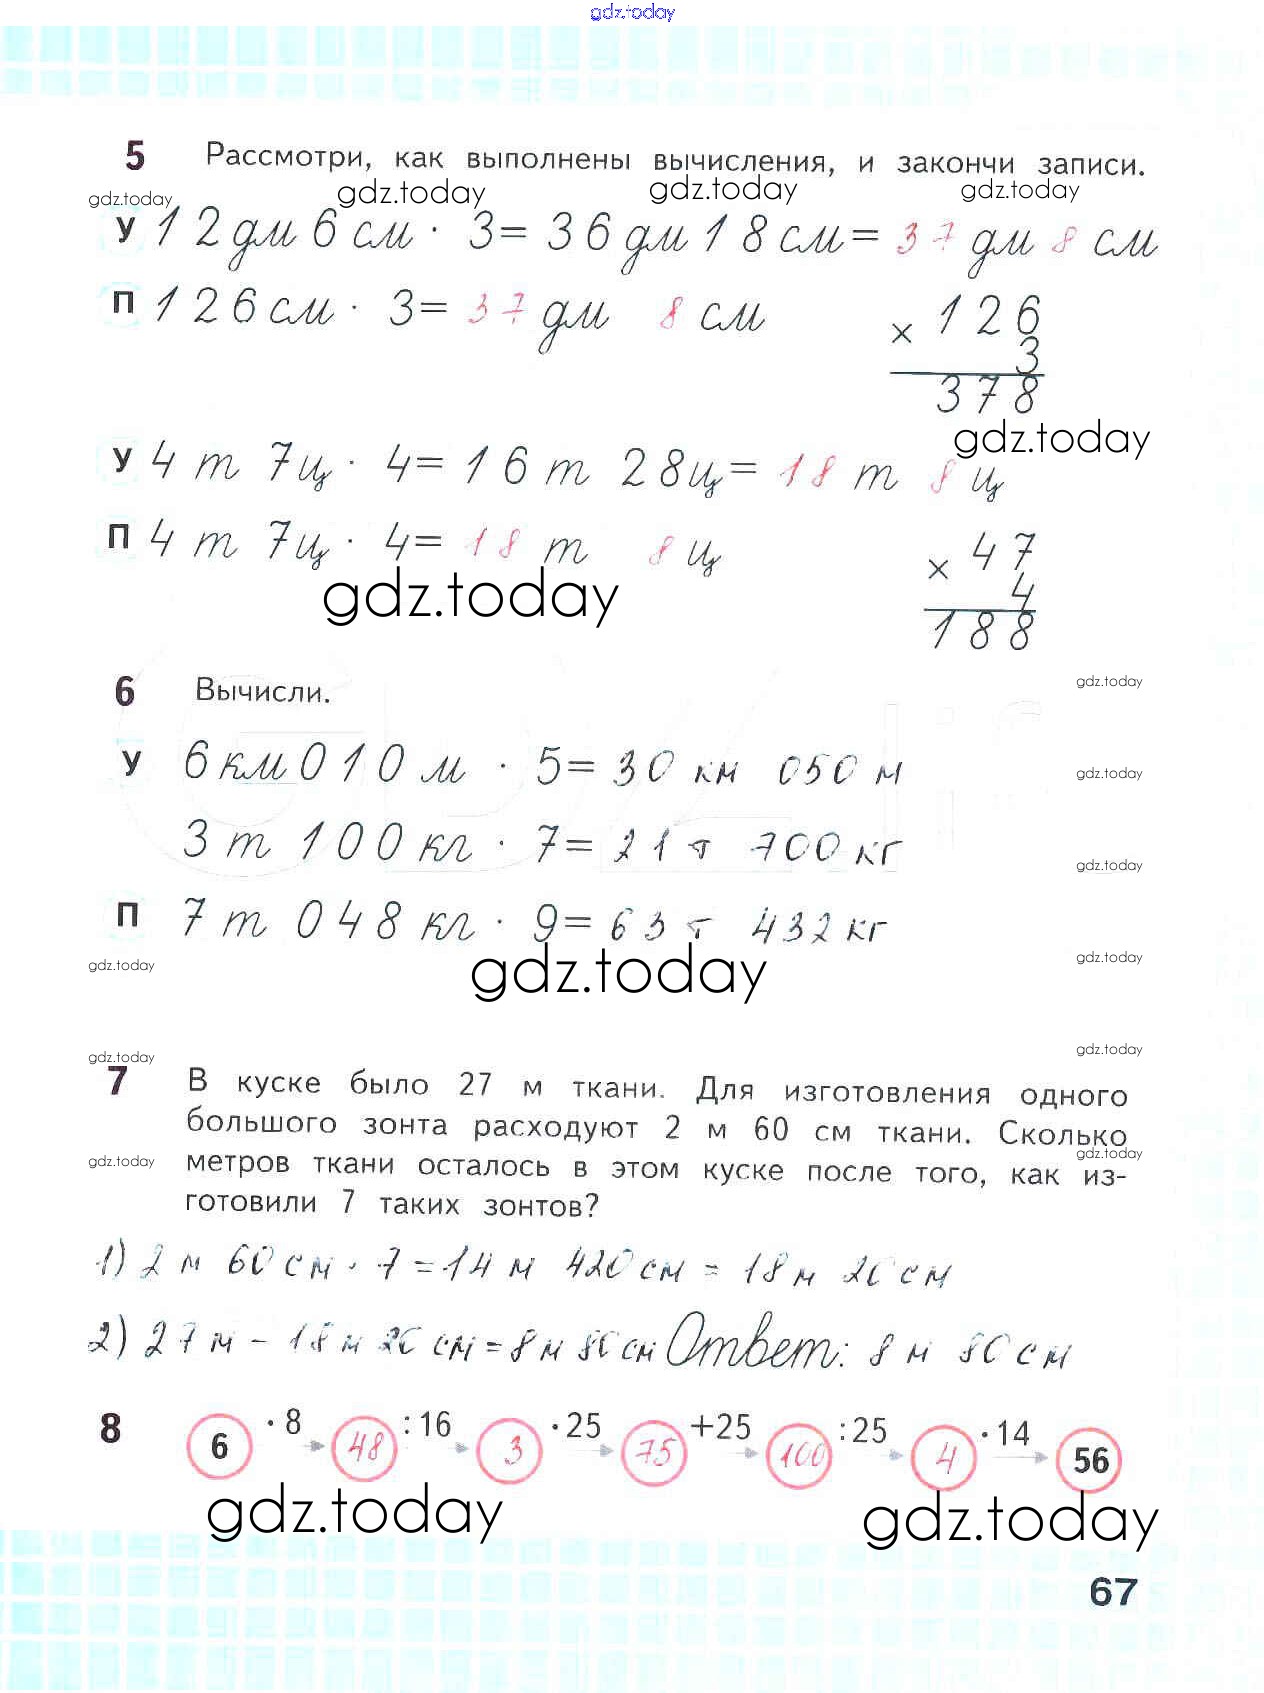 gdz.today
5 Рассмотри, как выполнены вычисления, и закончи записи.
gdz.today gdz.today gdz.today gdz.today
У 12 дм 6 см · 3 = 36 дм 18 см = 37 дм 8 см
П 126 см · 3 = 37 дм 8 см
× 126
3
378
gdz.today
У 4 т 7 ц · 4 = 16 т 28 ц = 18 т 8 ц
П 4 т 7 ц · 4 = 18 т 8 ц
× 47
4
188
gdz.today
6 Вычисли.
gdz.today
У 6 км 010 м · 5 = 30 км 050 м
gdz.today
3 т 100 кг · 7 = 21 т 700 кг
gdz.today
П 7 т 048 кг · 9 = 63 т 432 кг
gdz.today gdz.today gdz.today
gdz.today gdz.today
7 В куске было 27 м ткани. Для изготовления одного
большого зонта расходуют 2 м 60 см ткани. Сколько
gdz.today gdz.today
метров ткани осталось в этом куске после того, как из-
готовили 7 таких зонтов?
1) 2 м 60 см · 7 = 14 м 420 см = 18 м 20 см
2) 27 м - 18 м 20 см = 8 м 80 см Ответ: 8 м 80 см
8 6 · 8 48 : 16 3 · 25 75 +25 100 : 25 4 · 14 56
gdz.today gdz.today
67